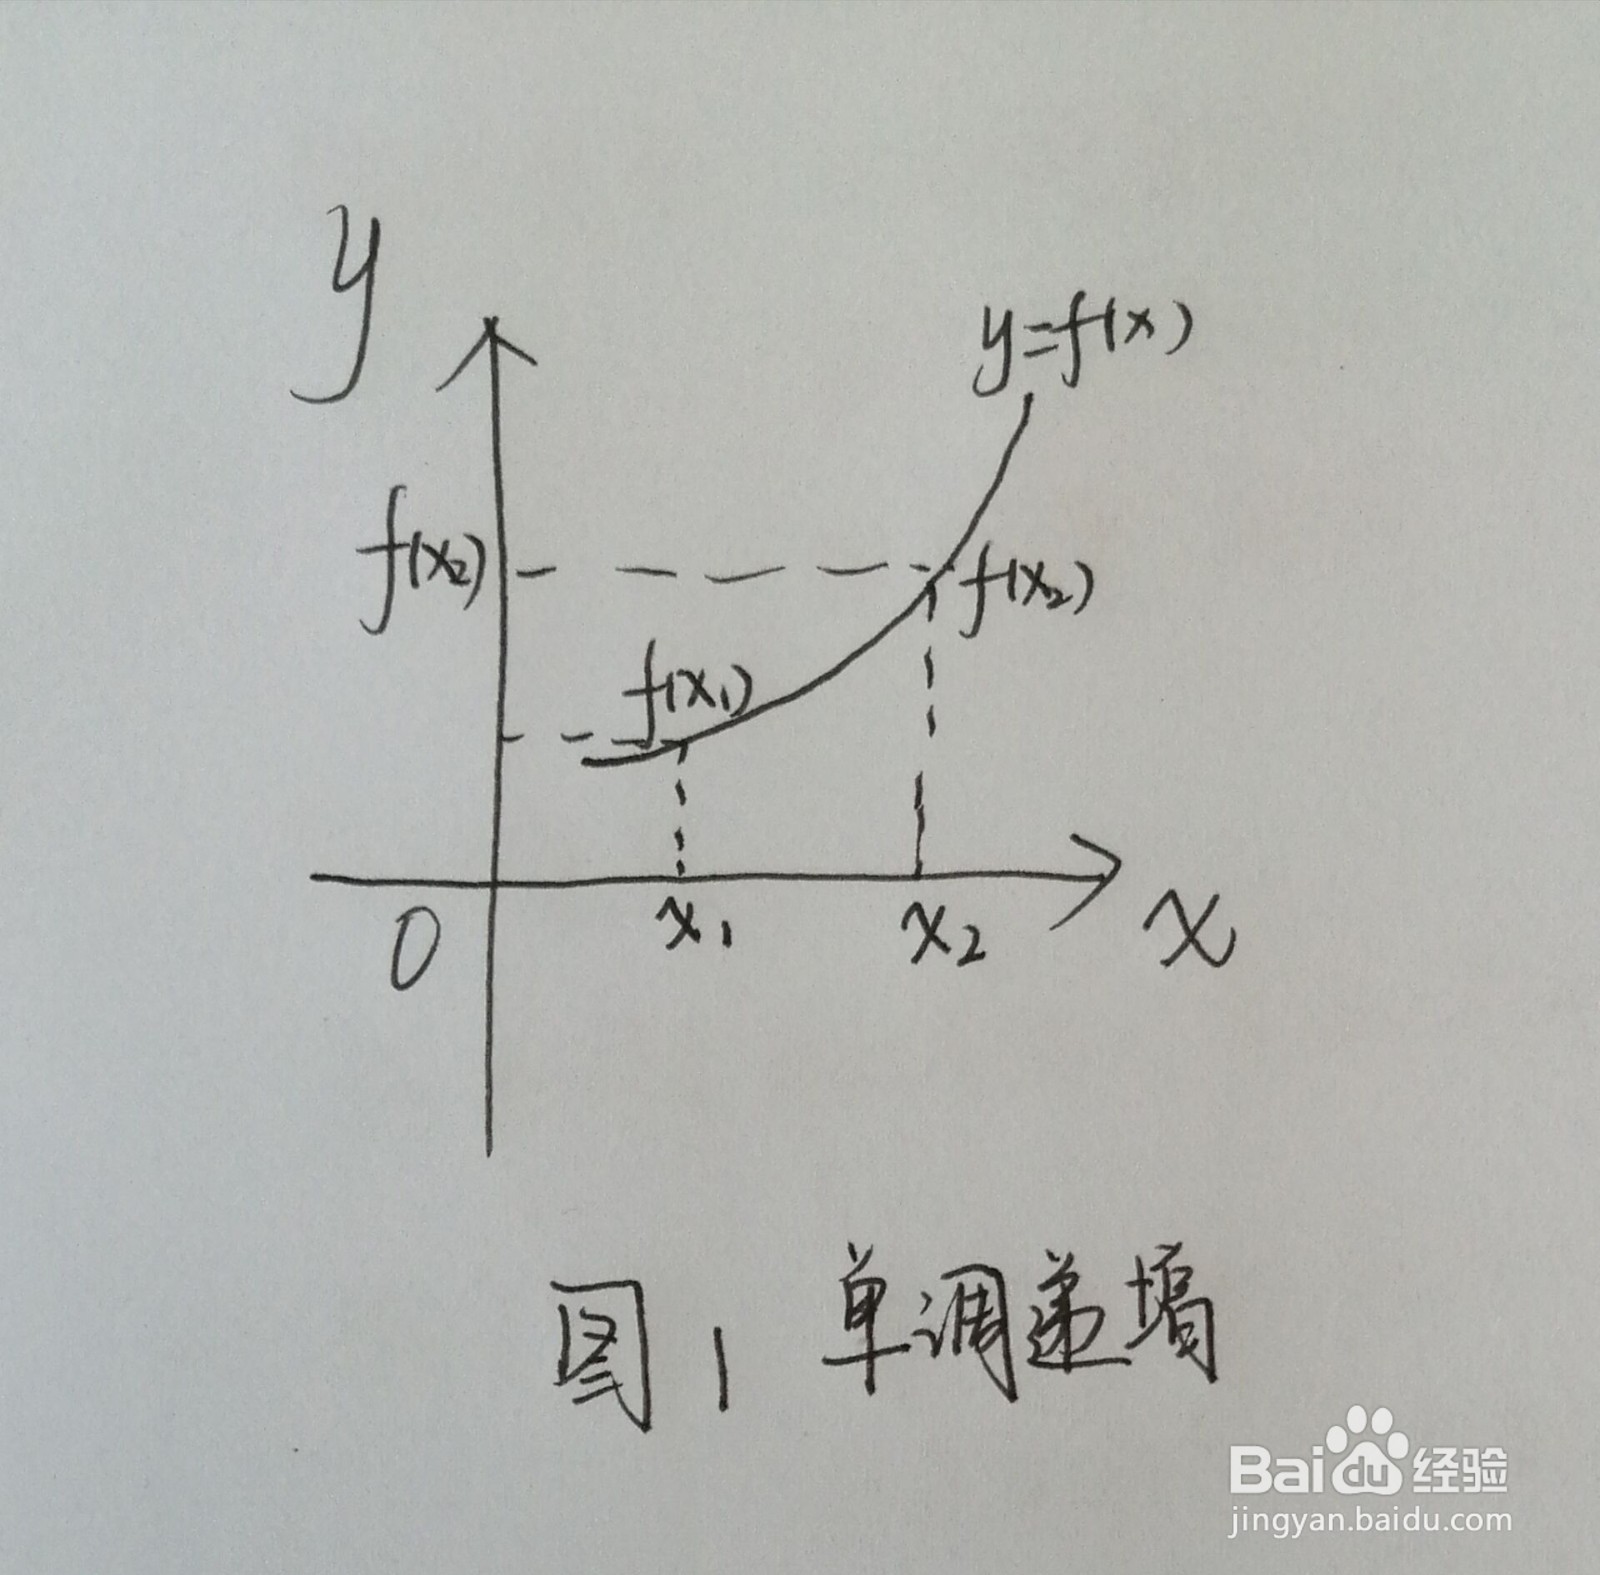 y
y=f(x)
f(x₂)
f(x₂)
f(x₁)
0
x₁
x₂
x
图1 单调递增
Baidu经验
jingyan.baidu.com